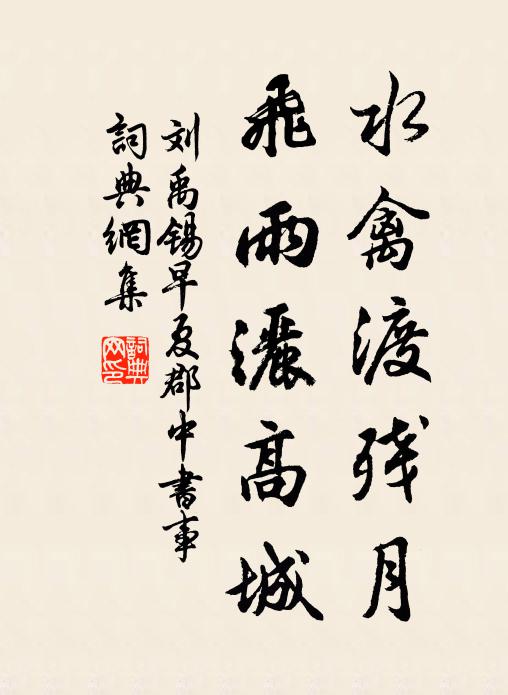 水禽渡残月
飛雨灑高城
刘禹锡早夏郡中書事
詞典網集
詞典网印